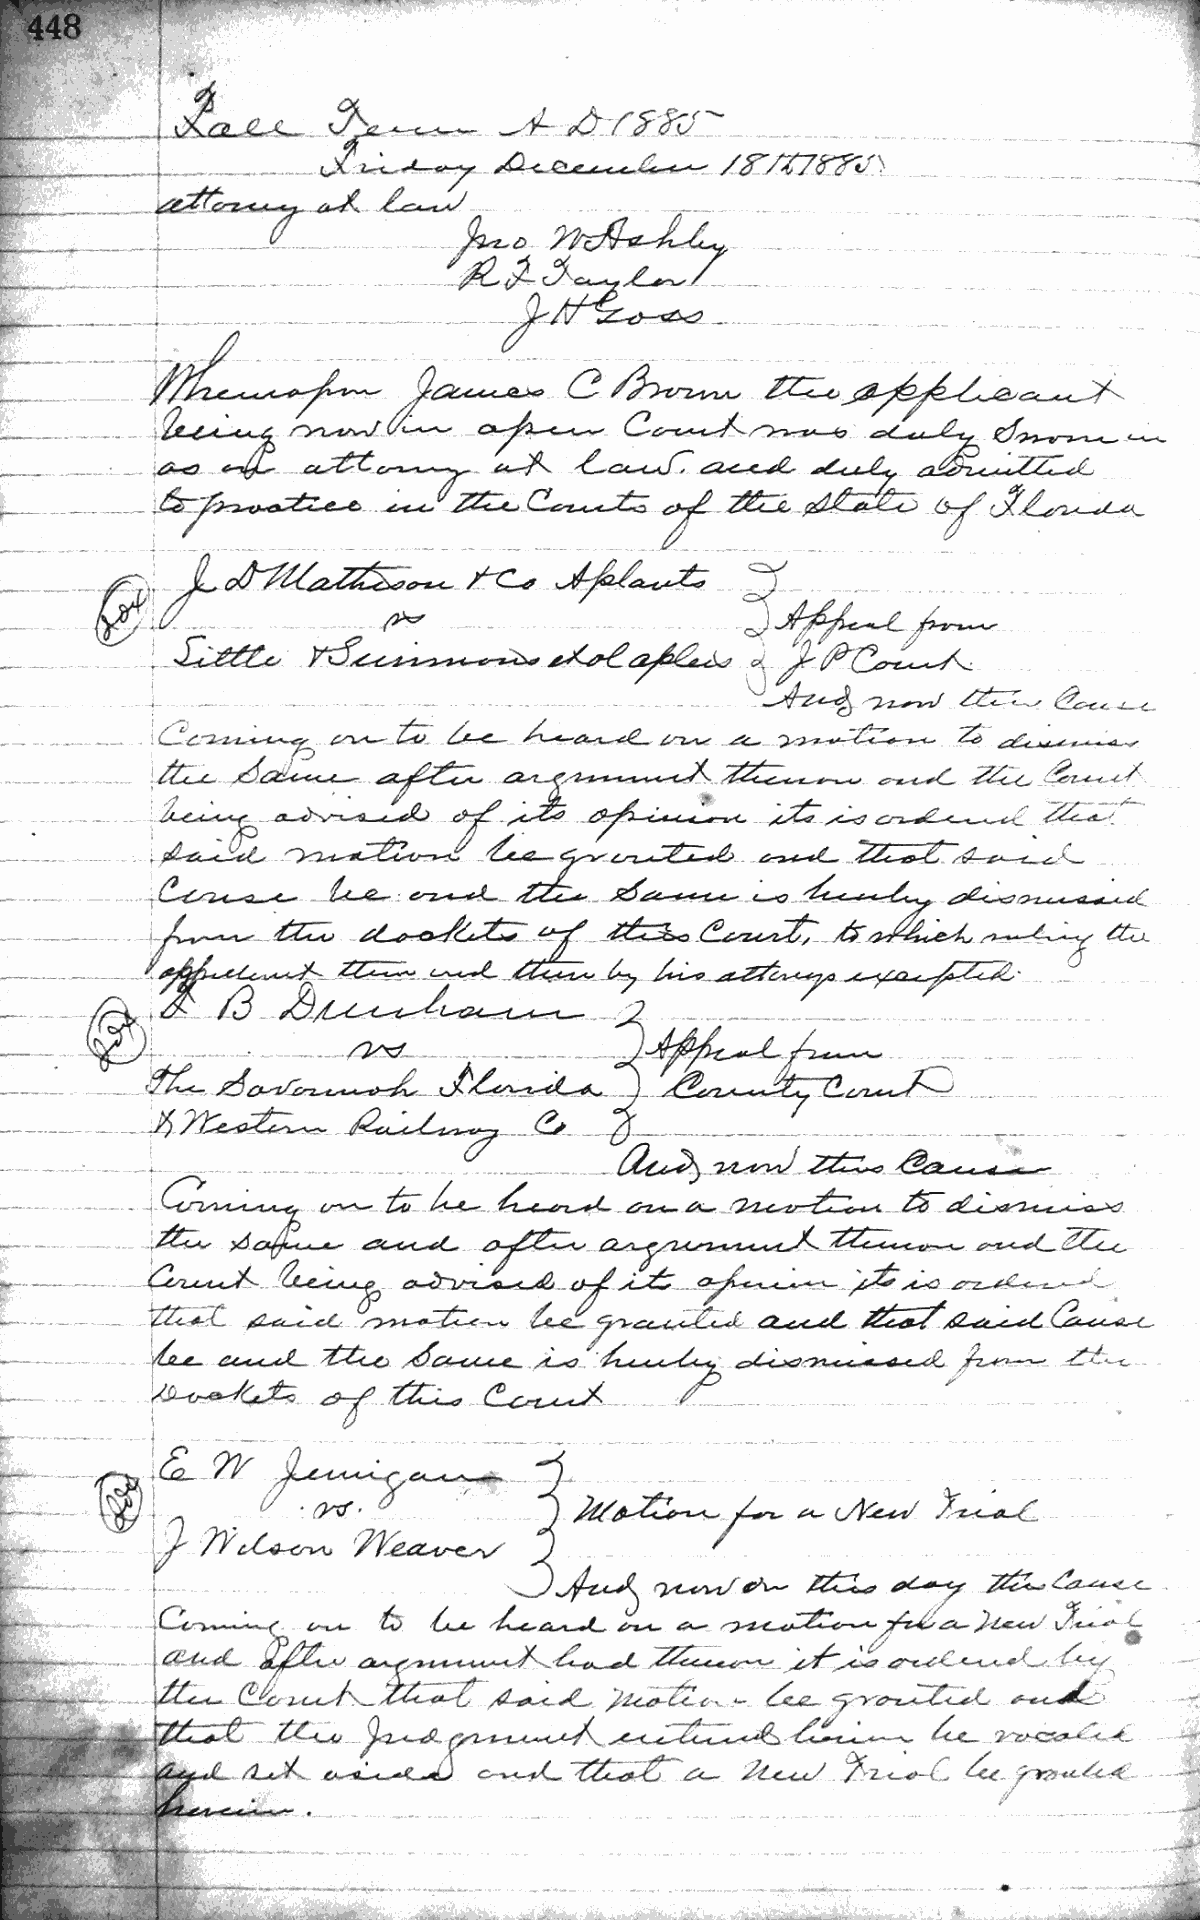 448
Fall Term A D 1885
Friday December 18th 1885
attorney at law
Jno W Ashby
R F Taylor
J H Goss
Whereupon James C Brown the applicant
being now in open Court was duly Sworn in
as an attorney at law. and duly admitted
to practice in the Courts of the State of Florida
J D Matheson & Co Aplants
vs
Little & Simmons et al aplees
Appeal from
J P Court
And now this Cause
Coming on to be heard on a motion to dismiss
the Same after argument thereon and the Court
being advised of its opinion its is ordered that
said motion be granted and that said
Cause be and the Same is hereby dismissed
from the dockets of this Court, to which ruling the
appellant then and there by his attorneys excepted.
B Dunham
vs
The Savannah Florida
& Western Railway Co
Appeal from
County Court
And now this Cause
Coming on to be heard on a motion to dismiss
the same and after argument thereon and the
Court being advised of its opinion its is ordered
that said motion be granted and that said Cause
be and the Same is hereby dismissed from the
Dockets of this Court
E W Jernigan
vs.
J Wilson Weaver
Motion for a New Trial
And now on this day this Cause
Coming on to be heard on a motion for a New Trial
and after argument had thereon it is ordered by
the Court that said motion be granted and
that the Judgment entered herein be vacated
and set aside and that a New Trial be granted
herein.